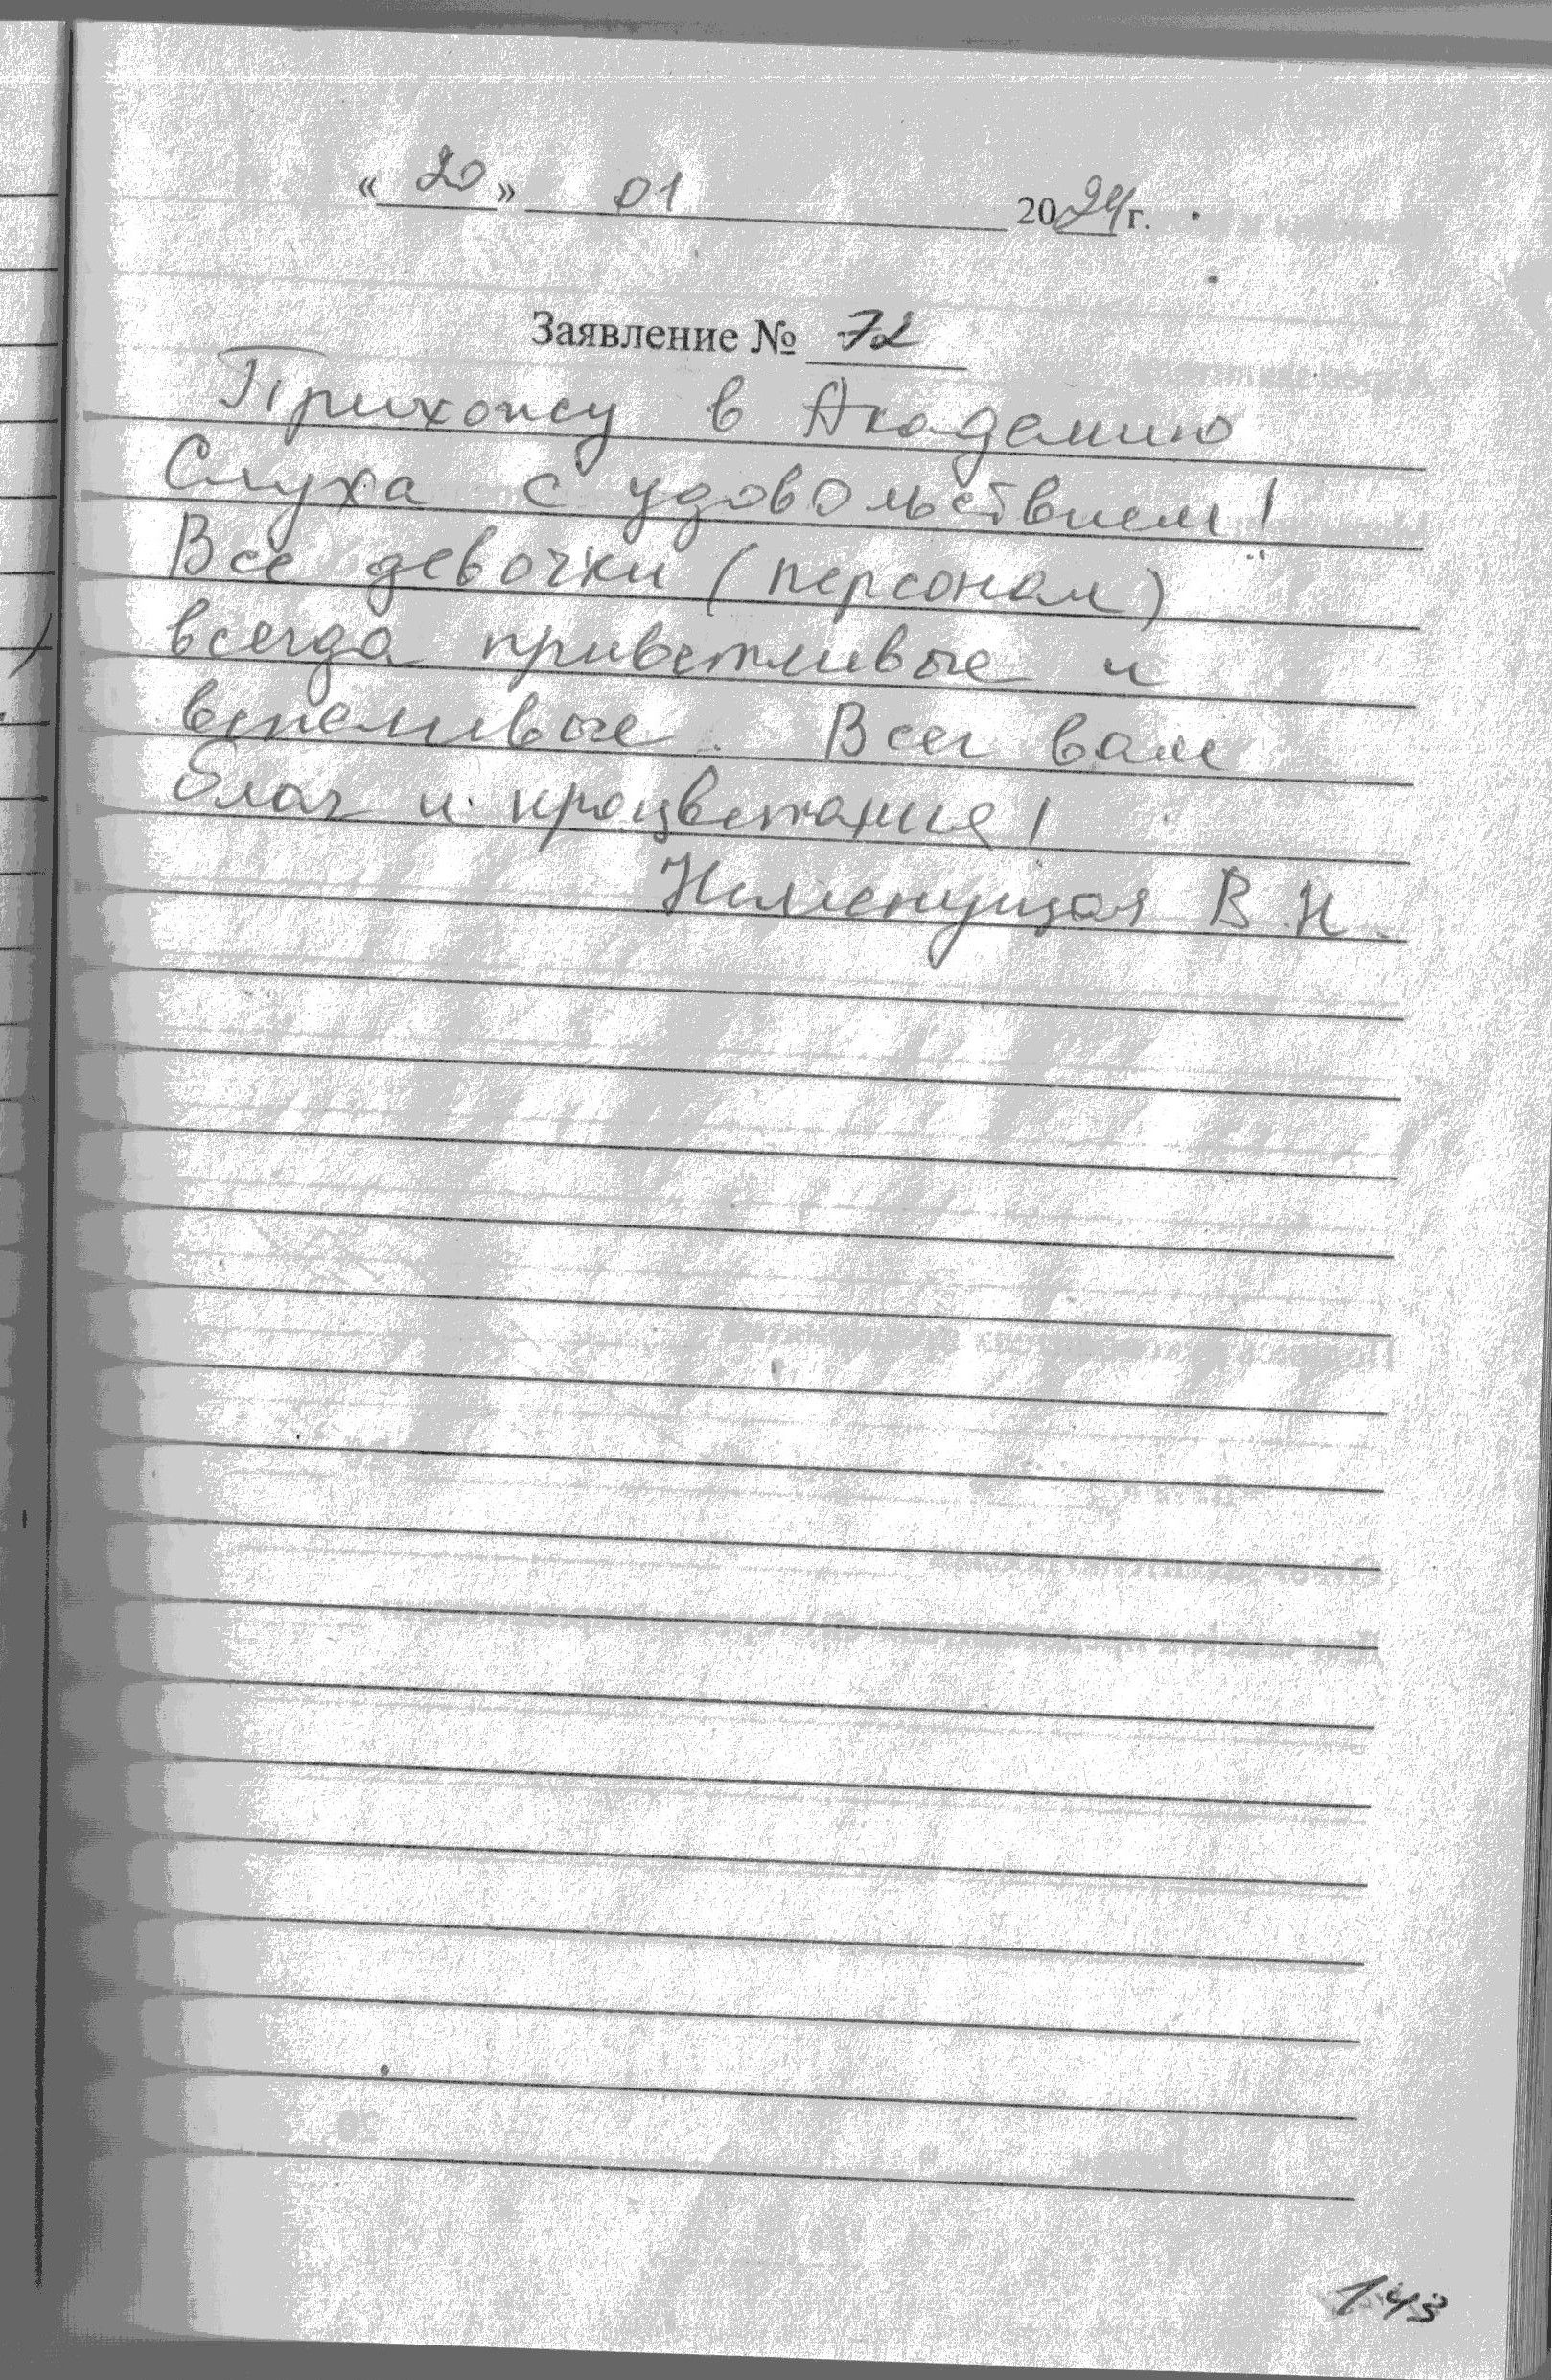 « 20 » 01 2024 г.
Заявление № 72
Прихожу в Академию
Слуха с удовольствием!
Все девочки (персонал)
всегда приветливые и
вежливые. Всех вам
благ и процветания!
В.Н.
143